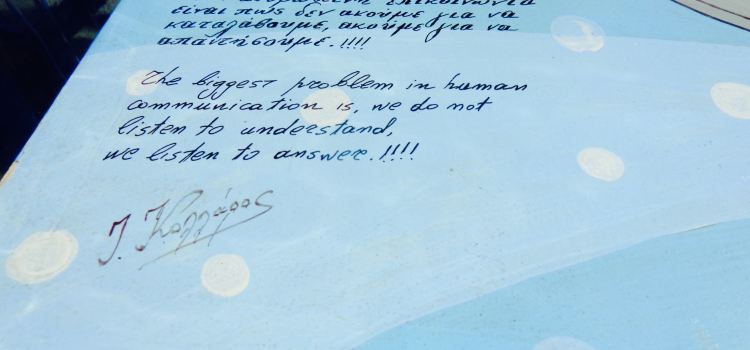 ανθρώπινη επικοινωνία
είναι πώς δεν ακούμε για να
καταλάβουμε, ακούμε για να
απαιτήσουμε.!!!!
The biggest problem in human
communication is, we do not
listen to understand,
we listen to answer.!!!!